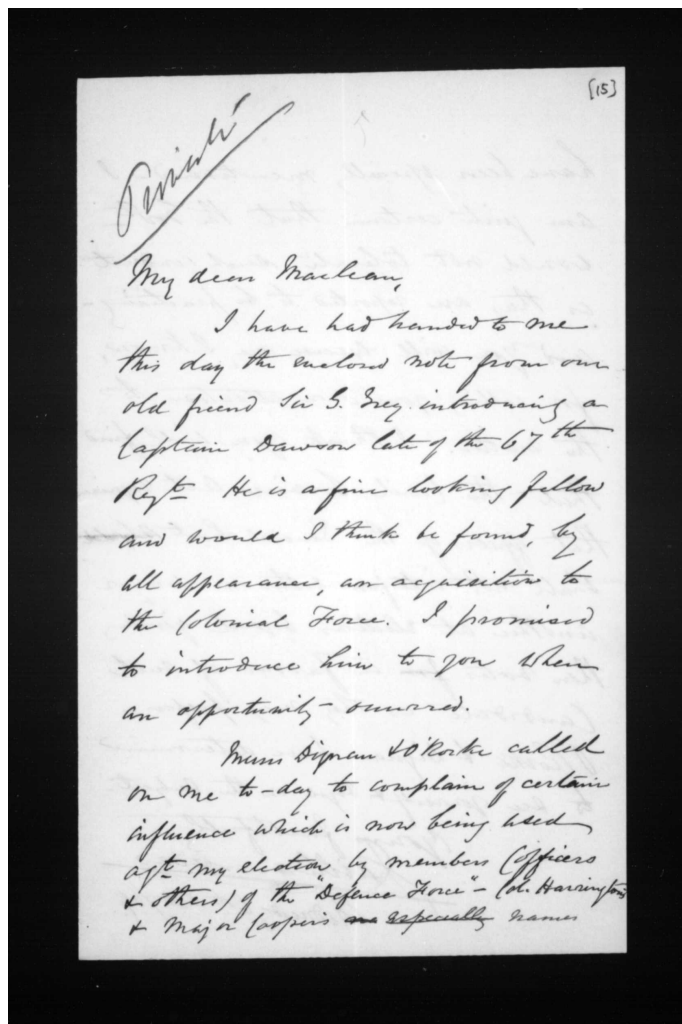 [15]
Private
My dear Maclean,
I have had handed to me
this day the enclosed note from our
old friend Sir G. Grey introducing a
Captain Dawson late of the 67th
Regt. He is a fine looking fellow
and would I think be found, by
all appearance, an acquisition to
the Colonial Force. I promised
to introduce him to you when
an opportunity occurred.
Messrs Dignan & O'Rorke called
on me to-day to complain of certain
influence which is now being used
agt. my election by members (officers
& others) of the "Defence Force" - Col. Harrington's
& Major Cooper's especially names